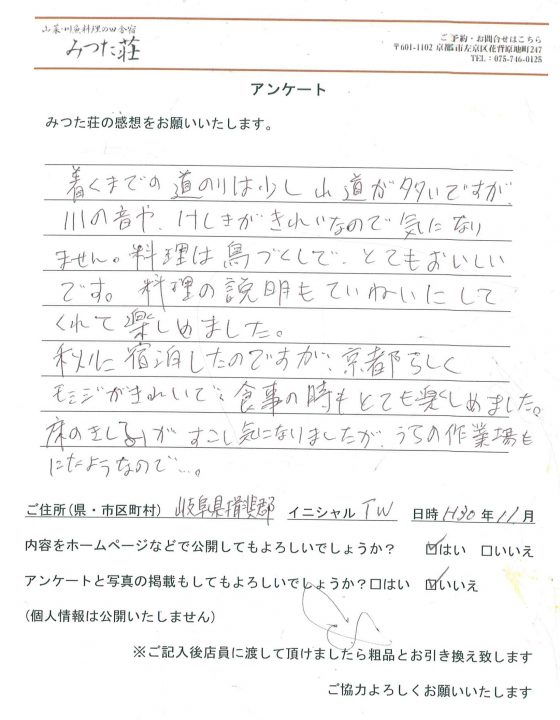 山菜・川魚料理の田舎宿
みつた荘
ご予約・お問合せはこちら
〒601-1102 京都市左京区花背原地町247
TEL:075-746-0125
アンケート
みつた荘の感想をお願いいたします。
着くまでの道のりは少し山道が多いですが、
川の音や、けしきがきれいなので気になり
ません。料理は鳥づくしで、とてもおいしい
です。料理の説明もていねいにして
くれて楽しめました。
秋に宿泊したのですが、京都らしく
モミジがきれいで、食事の時もとても楽しめました。
床のきしみがすこし気になりましたが、うちの作業場も
にたようなので…。
ご住所(県・市区町村) 岐阜県揖斐郡 イニシャル TW 日時 H30 年 11 月
内容をホームページなどで公開してもよろしいでしょうか? ☑はい □いいえ
アンケートと写真の掲載もしてもよろしいでしょうか?□はい ☑いいえ
(個人情報は公開いたしません)
※ご記入後店員に渡して頂けましたら粗品とお引き換え致します
ご協力よろしくお願いいたします